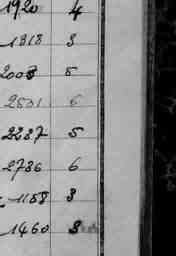 1920 4
1318 3
2003 5
2501 6
2237 5
2736 6
1158 3
1460 3